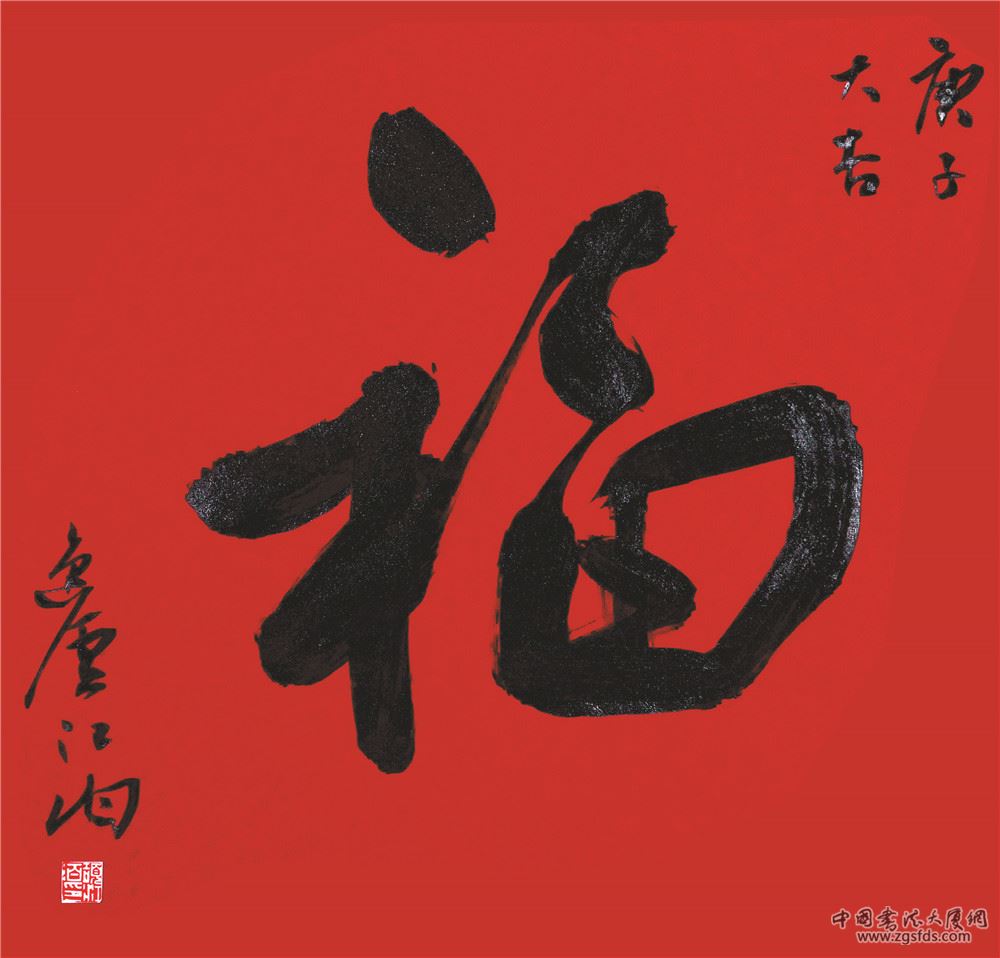 庚子
大吉
福
逸廬江
中国书法大厦网
www.zgsfds.com